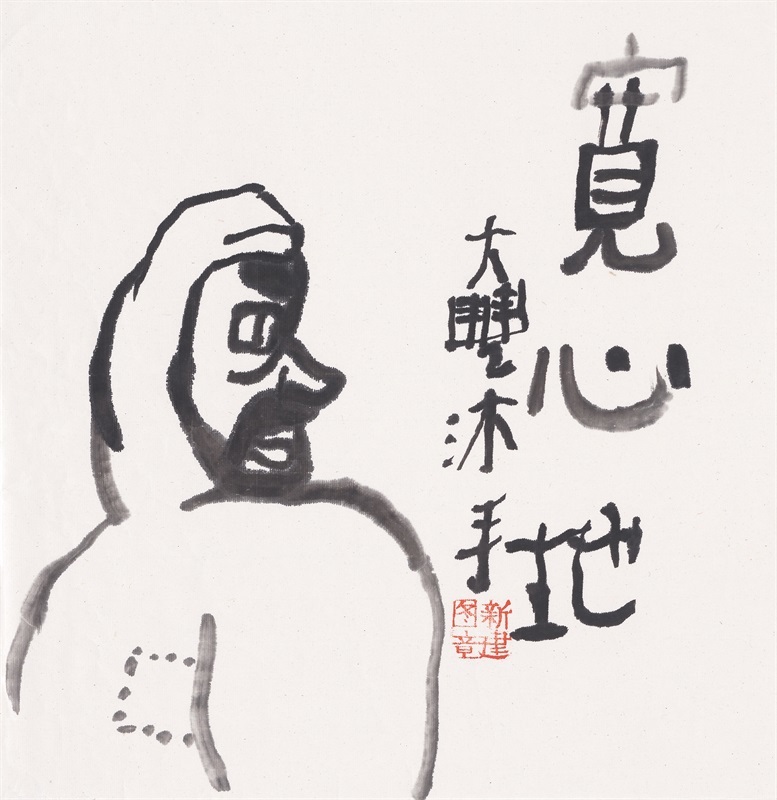 寬心地
大豐沐手
新建图章